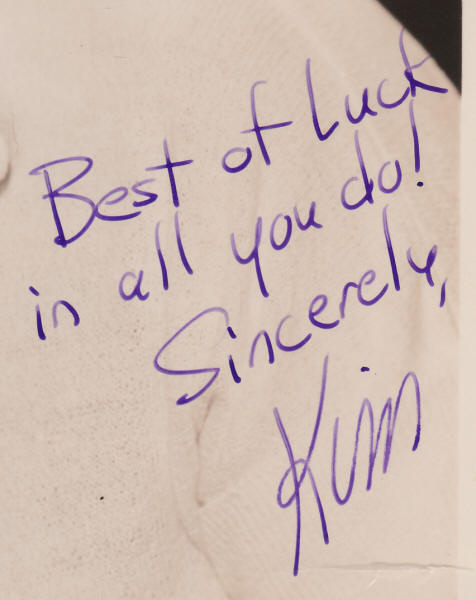 Best of Luck
in all you do!
Sincerely,
Kim